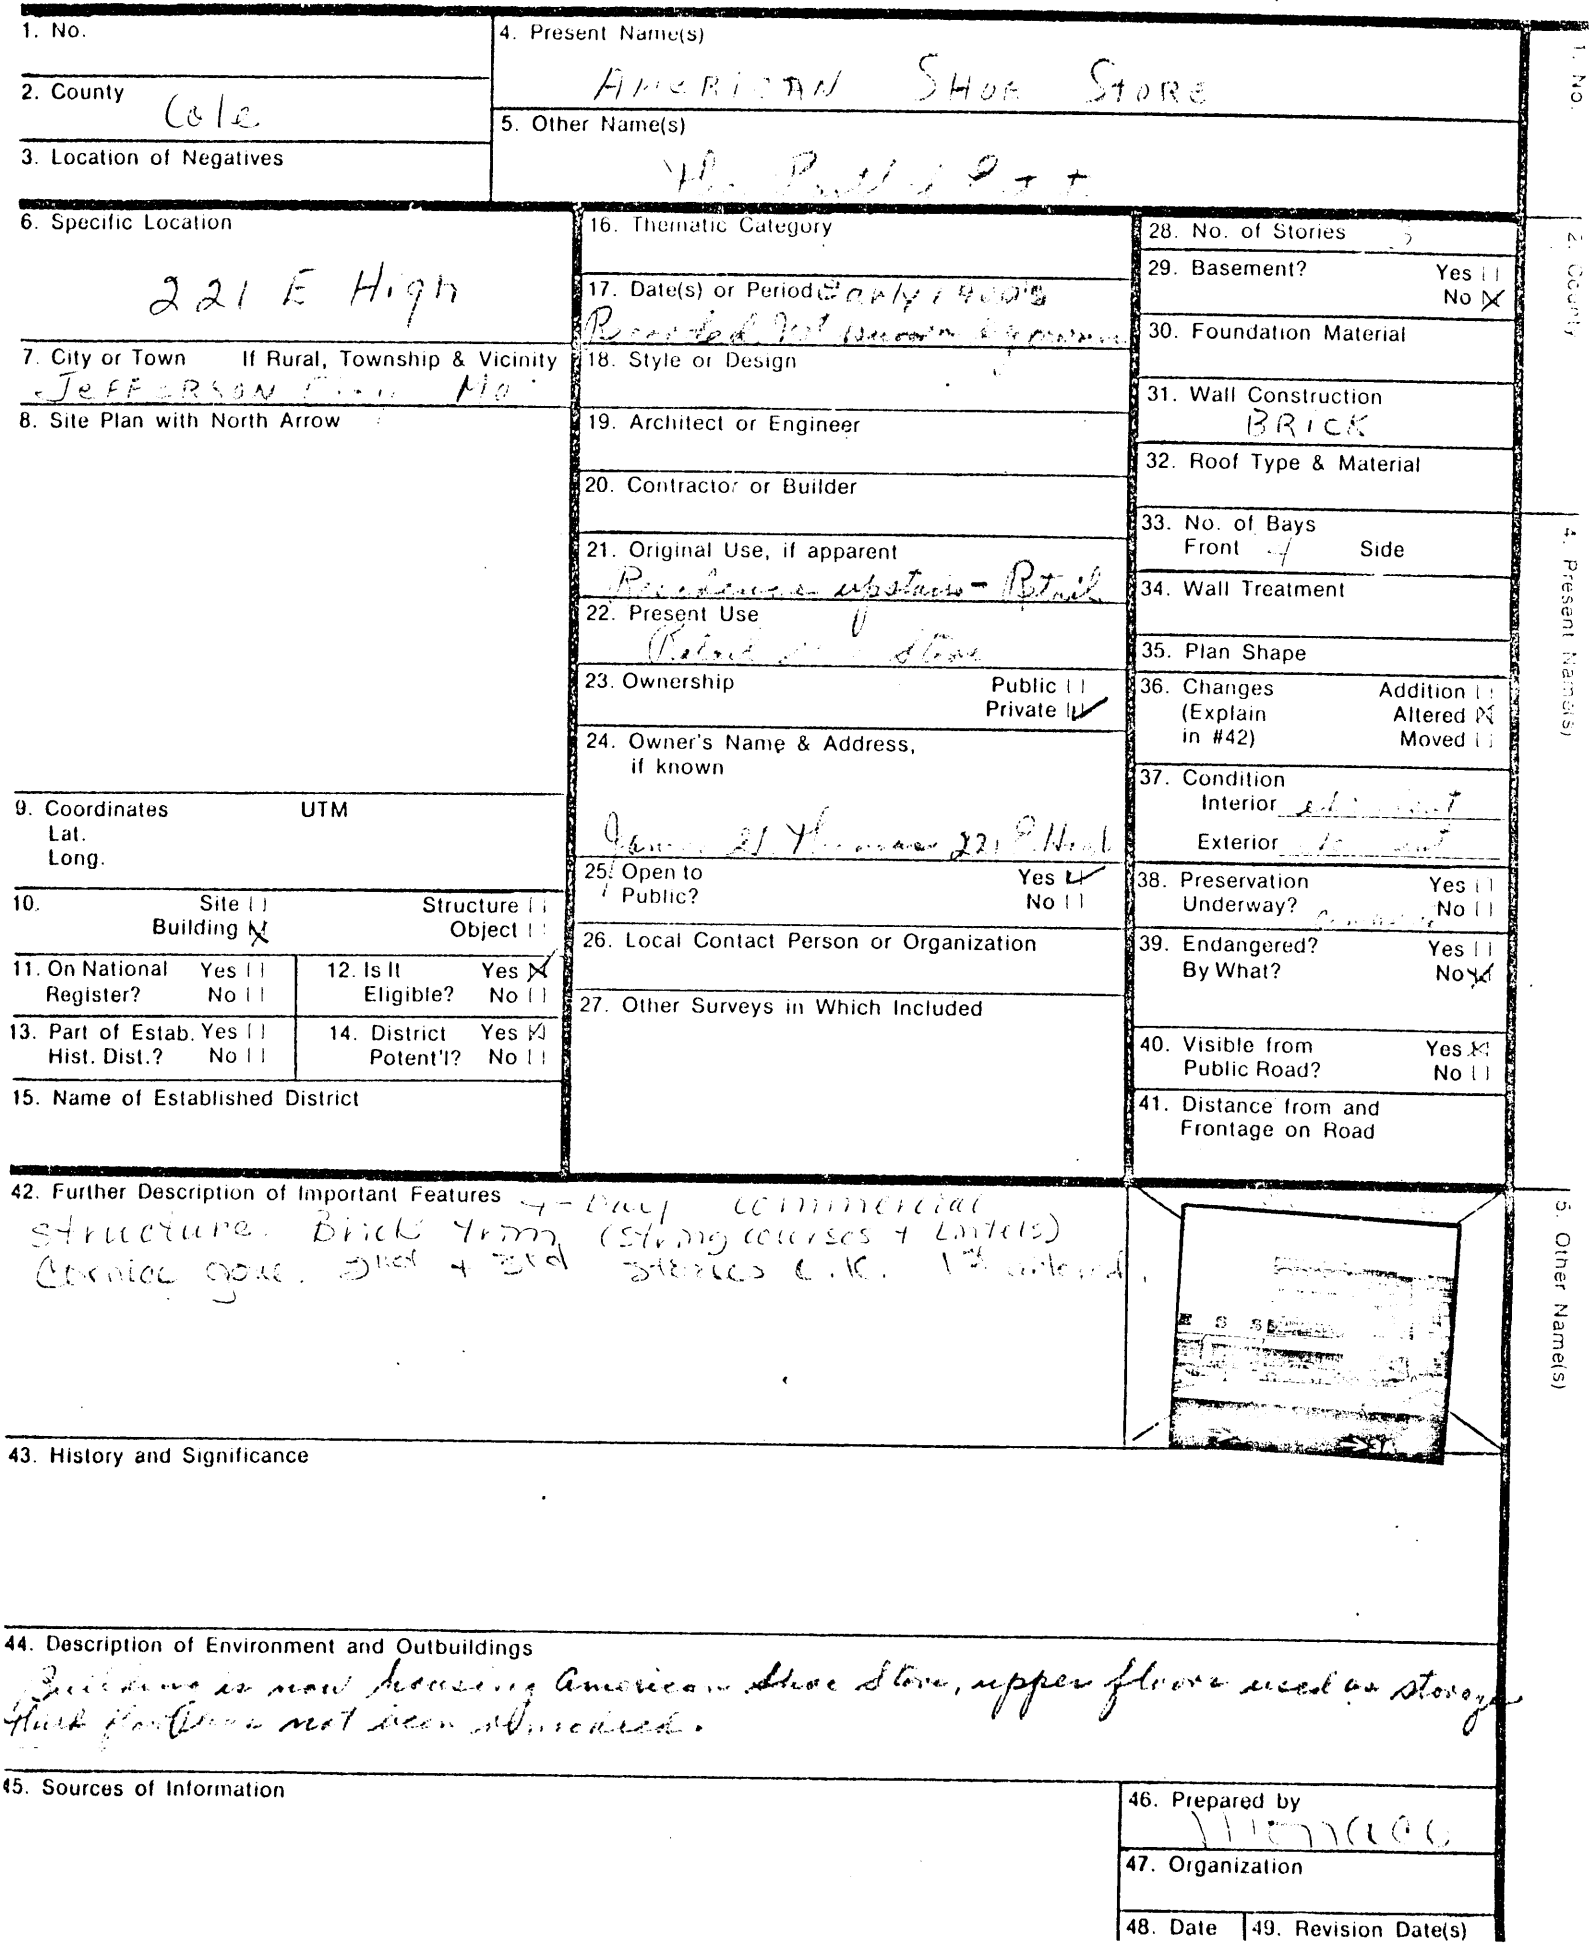 1. No.
2. County
Cole
3. Location of Negatives
4. Present Name(s)
AMERICAN SHOE STORE
5. Other Name(s)
The
6. Specific Location
221 E High
7. City or Town If Rural, Township & Vicinity
JEFFERSON City Mo
8. Site Plan with North Arrow
9. Coordinates UTM
Lat.
Long.
10. Site Structure
Building Object
11. On National Yes
Register? No
12. Is It Yes
Eligible? No
13. Part of Estab. Yes
Hist. Dist.? No
14. District Yes
Potent'l? No
15. Name of Established District
16. Thematic Category
17. Date(s) or Period Early 1900's
18. Style or Design
19. Architect or Engineer
20. Contractor or Builder
21. Original Use, if apparent
Residence upstairs - Retail
22. Present Use
Retail Store
23. Ownership Public
Private
24. Owner's Name & Address,
if known
221 E. High
25. Open to Yes
Public? No
26. Local Contact Person or Organization
27. Other Surveys in Which Included
28. No. of Stories 3
29. Basement? Yes
No
30. Foundation Material
31. Wall Construction
BRICK
32. Roof Type & Material
33. No. of Bays
Front 4 Side
34. Wall Treatment
35. Plan Shape
36. Changes Addition
(Explain Altered
in #42) Moved
37. Condition
Interior
Exterior
38. Preservation Yes
Underway? No
39. Endangered? Yes
By What? No
40. Visible from Yes
Public Road? No
41. Distance from and
Frontage on Road
42. Further Description of Important Features 4-Bay commercial
structure. Brick trim (string courses + Lintels)
Cornice gone. 2nd + 3rd stories O.K. 1st altered.
43. History and Significance
44. Description of Environment and Outbuildings
Building is now housing American Shoe Store, upper floors used as storage
not been
45. Sources of Information
46. Prepared by
47. Organization
48. Date 49. Revision Date(s)
1. No.
2. County
4. Present Name(s)
5. Other Name(s)